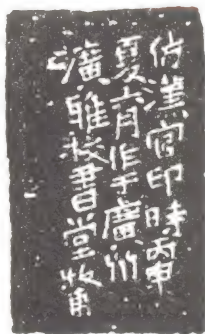 仿漢官印時丙申
夏六月作于廣州
之廣雅校書堂牧甫